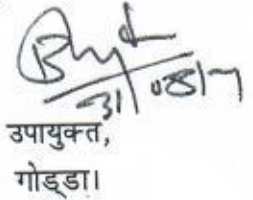 31/08/17
उपायुक्त,
गोड्डा।